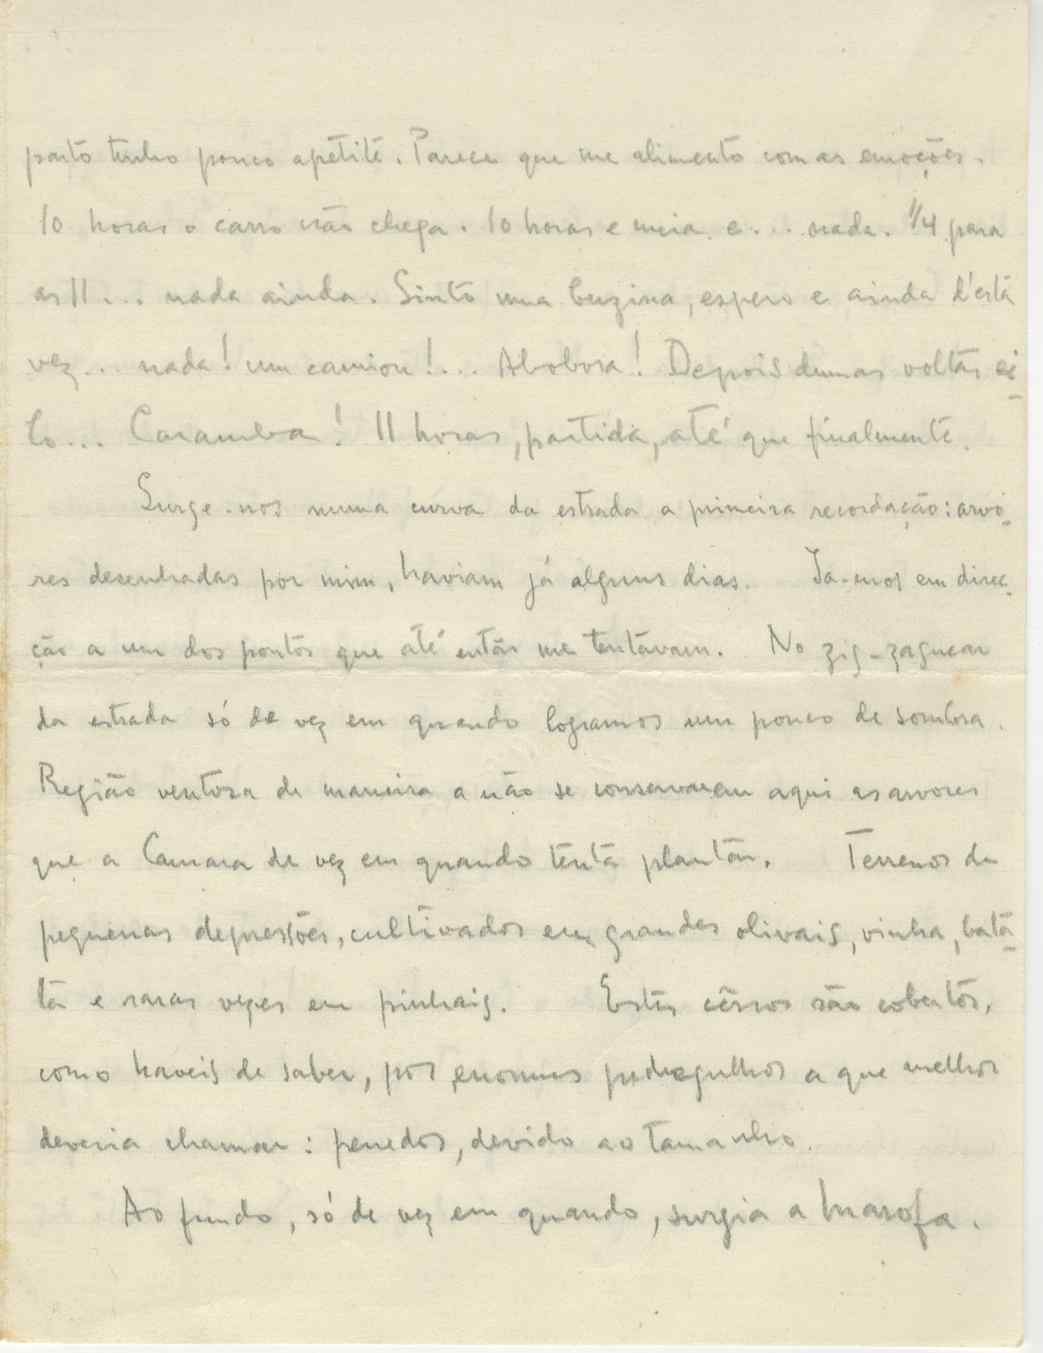 parto tenho pouco apetite. Parece que me alimento com as emoções.
10 horas o carro não chega. 10 horas e meia e... nada. 1/4 para
as 11... nada ainda. Sinto uma buzina, espero e ainda d'esta
vez... nada! um camion!... Abobora! Depois dumas voltas ei-
lo... Caramba! 11 horas, partida, até que finalmente.
Surge-nos numa curva da estrada a primeira recordação: arvo-
res desenhadas por mim, haviam já alguns dias. Ia-mos em direc-
ção a um dos pontos que até então me tentavam. No zig-zaguear
da estrada só de vez em quando logramos um pouco de sombra.
Região ventosa de maneira a não se conservarem aqui as arvores
que a Camara de vez em quando tenta plantar. Terrenos de
pequenas depressões, cultivados em grandes olivais, vinha, bata-
ta e raras vezes em pinhais. Estes cêrros são cobertos,
como haveis de saber, por enormes pedregulhos a que melhor
deveria chamar: penedos, devido ao tamanho.
Ao fundo, só de vez em quando, surgia a Marofa.